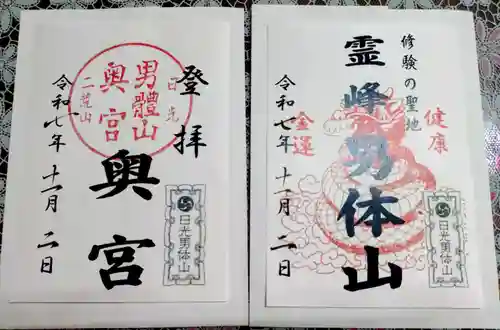 登拝
日光
男體山
奥宮
二荒山
奥宮
日光男体山
令和七年十一月二日
修験の聖地
霊峰男体山
健康
金運
日光男体山
令和七年十一月二日